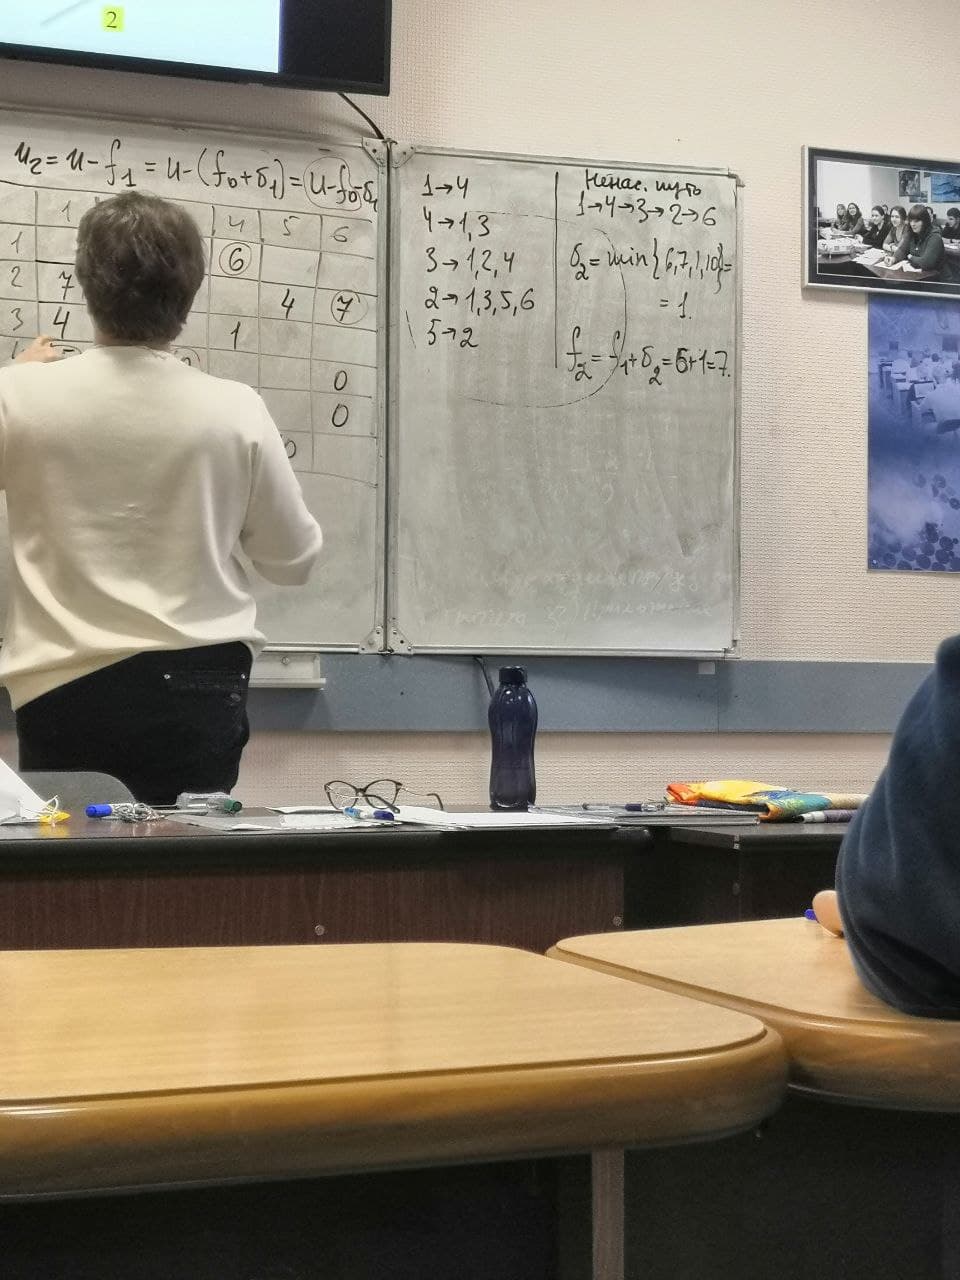 2
u₂ = u - f₁ = u - (f₀ + δ₁) = (u - f₀ - δ₁
1 4 5 6
1 6
2 7 4 7
3 4 1
0
0
0
1→4
4→1,3
3→1,2,4
2→1,3,5,6
5→2
Ненас. путь
1→4→3→2→6
δ₂ = min{6,7,1,10} =
= 1.
f₂ = f₁ + δ₂ = 6+1 = 7.